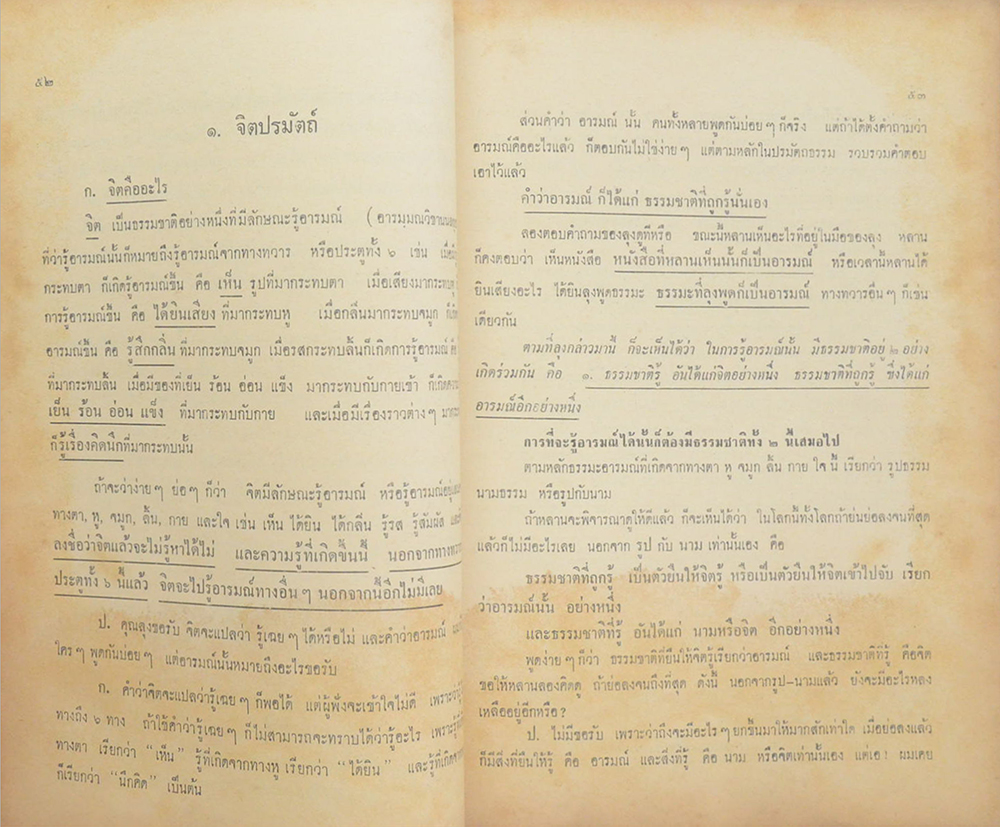 ๕๒
๑. จิตปรมัตถ์
ก. จิตคืออะไร
จิต เป็นธรรมชาติอย่างหนึ่งที่มีลักษณะรู้อารมณ์ (อารมฺมณวิชานน
ที่ว่ารู้อารมณ์นั้นก็หมายถึงรู้อารมณ์จากทางทวาร หรือประตูทั้ง ๖ เช่น เมื่อ
กระทบตา ก็เกิดรู้อารมณ์ขึ้น คือ เห็น รูปที่มากระทบตา เมื่อเสียงมากระทบหู
การรู้อารมณ์ขึ้น คือ ได้ยินเสียง ที่มากระทบหู เมื่อกลิ่นมากระทบจมูก ก็เกิด
อารมณ์ขึ้น คือ รู้สึกกลิ่น ที่มากระทบจมูก เมื่อรสกระทบลิ้นก็เกิดการรู้อารมณ์
ที่มากระทบลิ้น เมื่อมีของที่เย็น ร้อน อ่อน แข็ง มากระทบกับกายเข้า ก็เกิด
เย็น ร้อน อ่อน แข็ง ที่มากระทบกับกาย และเมื่อมีเรื่องราวต่างๆ
ก็รู้เรื่องคิดนึกที่มากระทบนั้น
ถ้าจะว่าง่ายๆ ย่อๆ ก็ว่า จิตมีลักษณะรู้อารมณ์ หรือรู้อารมณ์อยู่
ทางตา, หู, จมูก, ลิ้น, กาย และใจ เช่น เห็น ได้ยิน ได้กลิ่น รู้รส รู้สัมผัส
ลงชื่อว่าจิตแล้วจะไม่รู้หาได้ไม่ และความรู้ที่เกิดขึ้นนี้ นอกจากทาง
ประตูทั้ง ๖ นี้แล้ว จิตจะไปรู้อารมณ์ทางอื่นๆ นอกจากนี้อีกไม่มีเลย
ป. คุณลุงขอรับ จิตจะแปลว่า รู้เฉยๆ ได้หรือไม่ และคำว่าอารมณ์
ใครๆ พูดกันบ่อยๆ แต่อารมณ์นั้นหมายถึงอะไรขอรับ
ก. คำว่าจิตจะแปลว่ารู้เฉยๆ ก็พอได้ แต่ผู้ฟังจะเข้าใจไม่ดี เพราะ
ทางถึง ๖ ทาง ถ้าใช้คำว่ารู้เฉยๆ ก็ไม่สามารถจะทราบได้ว่ารู้อะไร เพราะ
ทางตา เรียกว่า "เห็น" รู้ที่เกิดจากทางหู เรียกว่า "ได้ยิน" และรู้ที่เกิด
ก็เรียกว่า "นึกคิด" เป็นต้น
๕๓
ส่วนคำว่า อารมณ์ นั้น คนทั้งหลายพูดกันบ่อยๆ ก็จริง แต่ถ้าได้ตั้งคำถามว่า
อารมณ์คืออะไรแล้ว ก็ตอบกันไม่ใช่ง่ายๆ แต่ตามหลักในปรมัตถธรรม รวบรวมคำตอบ
เอาไว้แล้ว
คำว่าอารมณ์ ก็ได้แก่ ธรรมชาติที่ถูกรู้นั่นเอง
ลองตอบคำถามของลุงดูทีหรือ ขณะนี้หลานเห็นอะไรที่อยู่ในมือของลุง หลาน
ก็คงตอบว่า เห็นหนังสือ หนังสือที่หลานเห็นนั้นก็เป็นอารมณ์ หรือเวลานี้หลานได้
ยินเสียงอะไร ได้ยินลุงพูดธรรมะ ธรรมะที่ลุงพูดก็เป็นอารมณ์ ทางทวารอื่นๆ ก็เช่น
เดียวกัน
ตามที่ลุงกล่าวมานี้ ก็จะเห็นได้ว่า ในการรู้อารมณ์นั้น มีธรรมชาติอยู่ ๒ อย่าง
เกิดร่วมกัน คือ ๑. ธรรมชาติรู้ อันได้แก่จิตอย่างหนึ่ง ธรรมชาติที่ถูกรู้ ซึ่งได้แก่
อารมณ์อีกอย่างหนึ่ง
การที่จะรู้อารมณ์ได้นั้นก็ต้องมีธรรมชาติทั้ง ๒ นี้เสมอไป
ตามหลักธรรมะอารมณ์ที่เกิดจากทางตา หู จมูก ลิ้น กาย ใจ นี้ เรียกว่า รูปธรรม
นามธรรม หรือรูปกับนาม
ถ้าหลานจะพิจารณาดูให้ดีแล้ว ก็จะเห็นได้ว่า ในโลกนี้ทั้งโลกถ้าย่นย่อลงจนที่สุด
แล้วก็ไม่มีอะไรเลย นอกจาก รูป กับ นาม เท่านั้นเอง คือ
ธรรมชาติที่ถูกรู้ เป็นตัวยืนให้จิตรู้ หรือเป็นตัวยืนให้จิตเข้าไปจับ เรียก
ว่าอารมณ์นั้น อย่างหนึ่ง
และธรรมชาติที่รู้ อันได้แก่ นามหรือจิต อีกอย่างหนึ่ง
พูดง่ายๆ ก็ว่า ธรรมชาติที่ยืนให้จิตรู้เรียกว่าอารมณ์ และธรรมชาติที่รู้ คือจิต
ขอให้หลานลองคิดดู ถ้าย่อลงจนถึงที่สุด ดังนี้ นอกจากรูป-นามแล้ว ยังจะมีอะไรหลง
เหลืออยู่อีกหรือ?
ป. ไม่มีขอรับ เพราะว่าถึงจะมีอะไรๆ ยกขึ้นมาให้มากสักเท่าใด เมื่อย่อลงแล้ว
ก็มีสิ่งที่ยืนให้รู้ คือ อารมณ์ และสิ่งที่รู้ คือ นาม หรือจิตเท่านั้นเอง แต่เอ! ผมเคย